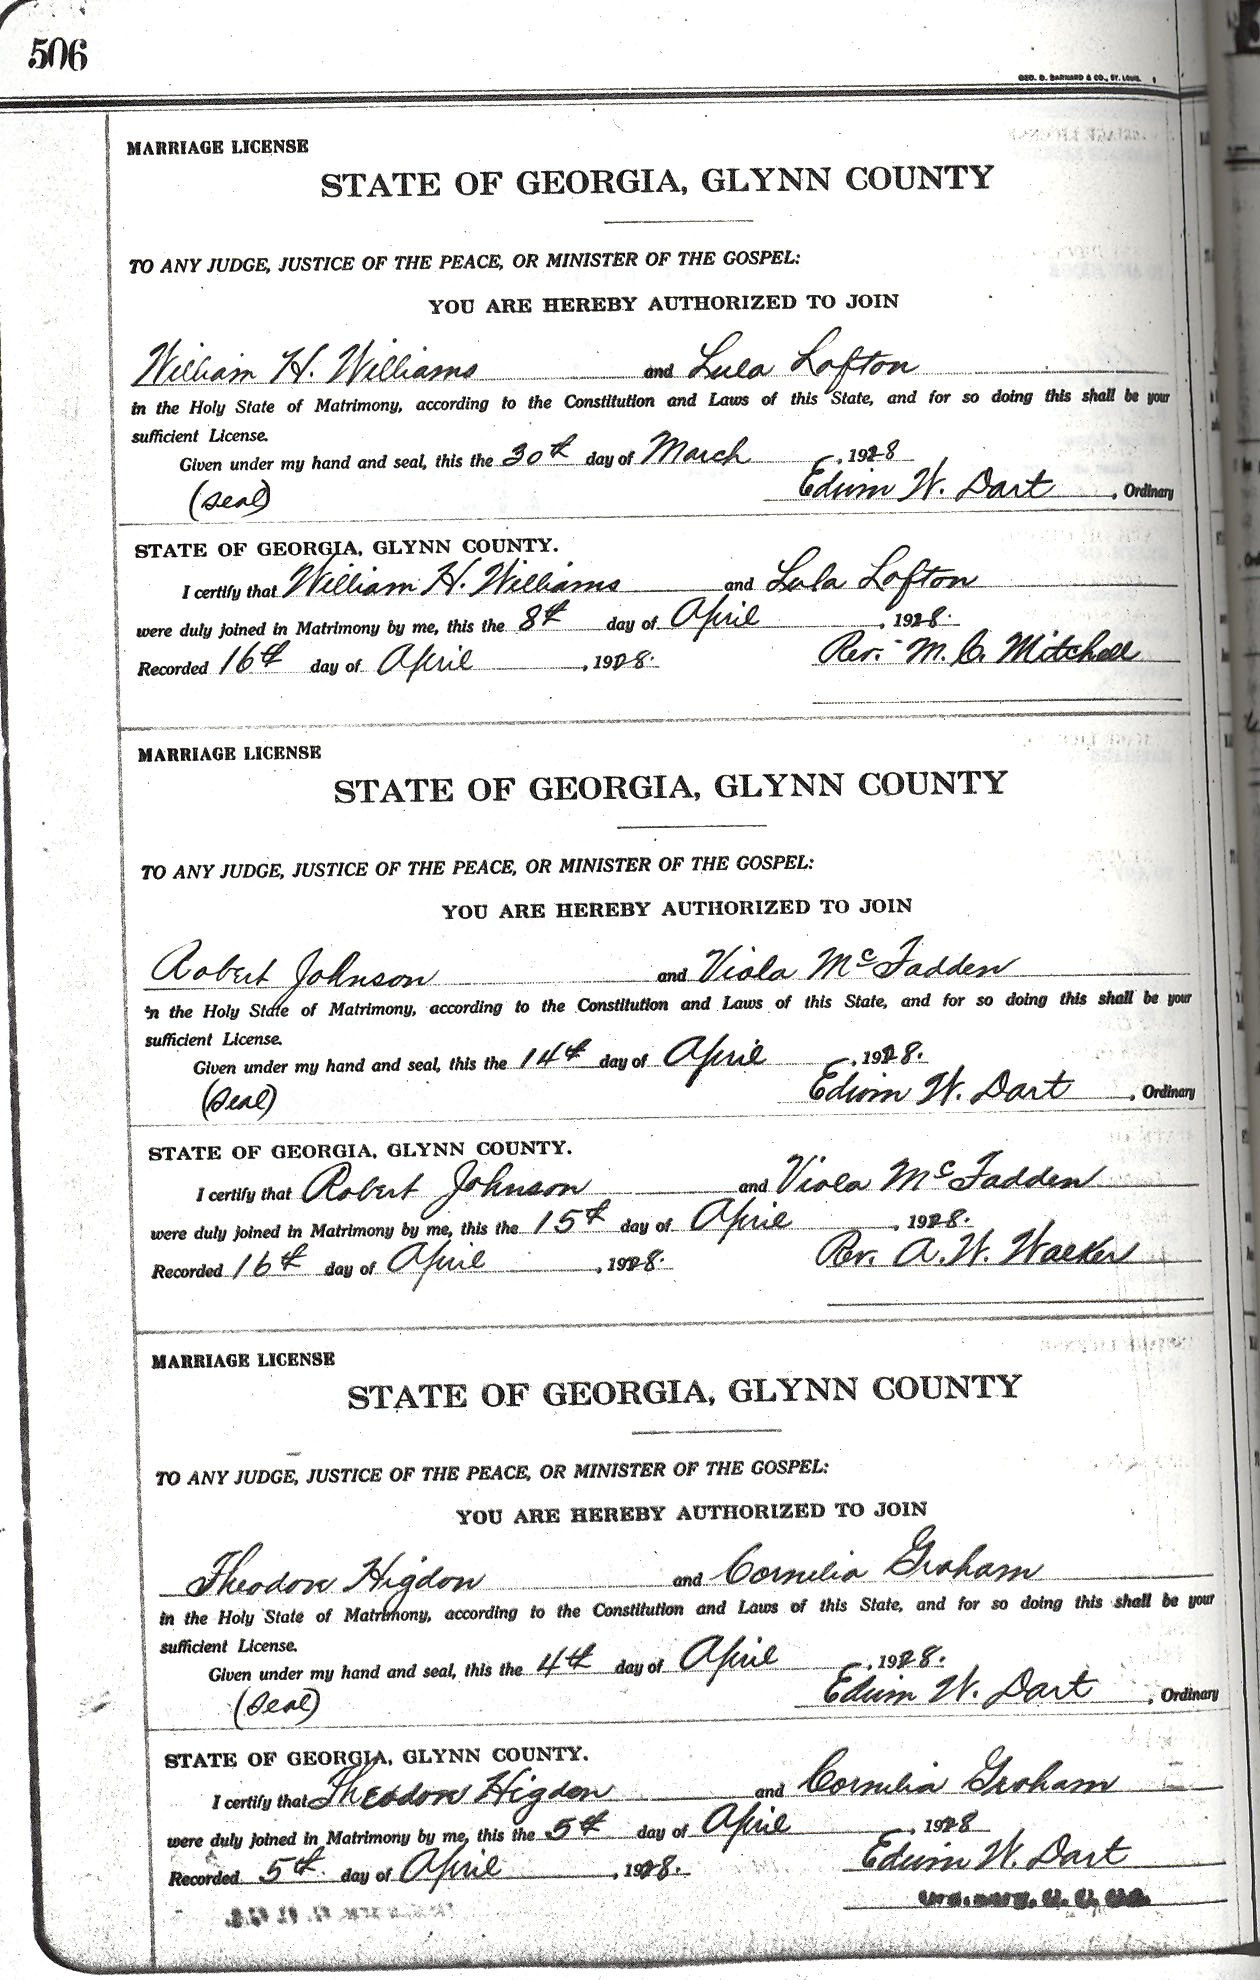 506
GEO. D. BARNARD & CO., ST. LOUIS.
MARRIAGE LICENSE
STATE OF GEORGIA, GLYNN COUNTY
TO ANY JUDGE, JUSTICE OF THE PEACE, OR MINISTER OF THE GOSPEL:
YOU ARE HEREBY AUTHORIZED TO JOIN
William H. Williams and Lula Lofton
in the Holy State of Matrimony, according to the Constitution and Laws of this State, and for so doing this shall be your
sufficient License.
Given under my hand and seal, this the 30th day of March, 1928
(seal) Edwin W. Dart, Ordinary
STATE OF GEORGIA, GLYNN COUNTY.
I certify that William H. Williams and Lula Lofton
were duly joined in Matrimony by me, this the 8th day of April, 1928.
Recorded 16th day of April, 1928. Rev. M. C. Mitchell
MARRIAGE LICENSE
STATE OF GEORGIA, GLYNN COUNTY
TO ANY JUDGE, JUSTICE OF THE PEACE, OR MINISTER OF THE GOSPEL:
YOU ARE HEREBY AUTHORIZED TO JOIN
Robert Johnson and Viola McFadden
in the Holy State of Matrimony, according to the Constitution and Laws of this State, and for so doing this shall be your
sufficient License.
Given under my hand and seal, this the 14th day of April, 1928.
(seal) Edwin W. Dart, Ordinary
STATE OF GEORGIA, GLYNN COUNTY.
I certify that Robert Johnson and Viola McFadden
were duly joined in Matrimony by me, this the 15th day of April, 1928.
Recorded 16th day of April, 1928. Rev. A. W. Walker
MARRIAGE LICENSE
STATE OF GEORGIA, GLYNN COUNTY
TO ANY JUDGE, JUSTICE OF THE PEACE, OR MINISTER OF THE GOSPEL:
YOU ARE HEREBY AUTHORIZED TO JOIN
Theodore Higdon and Cornelia Graham
in the Holy State of Matrimony, according to the Constitution and Laws of this State, and for so doing this shall be your
sufficient License.
Given under my hand and seal, this the 4th day of April, 1928.
(seal) Edwin W. Dart, Ordinary
STATE OF GEORGIA, GLYNN COUNTY.
I certify that Theodore Higdon and Cornelia Graham
were duly joined in Matrimony by me, this the 5th day of April, 1928
Recorded 5th. day of April, 1928. Edwin W. Dart